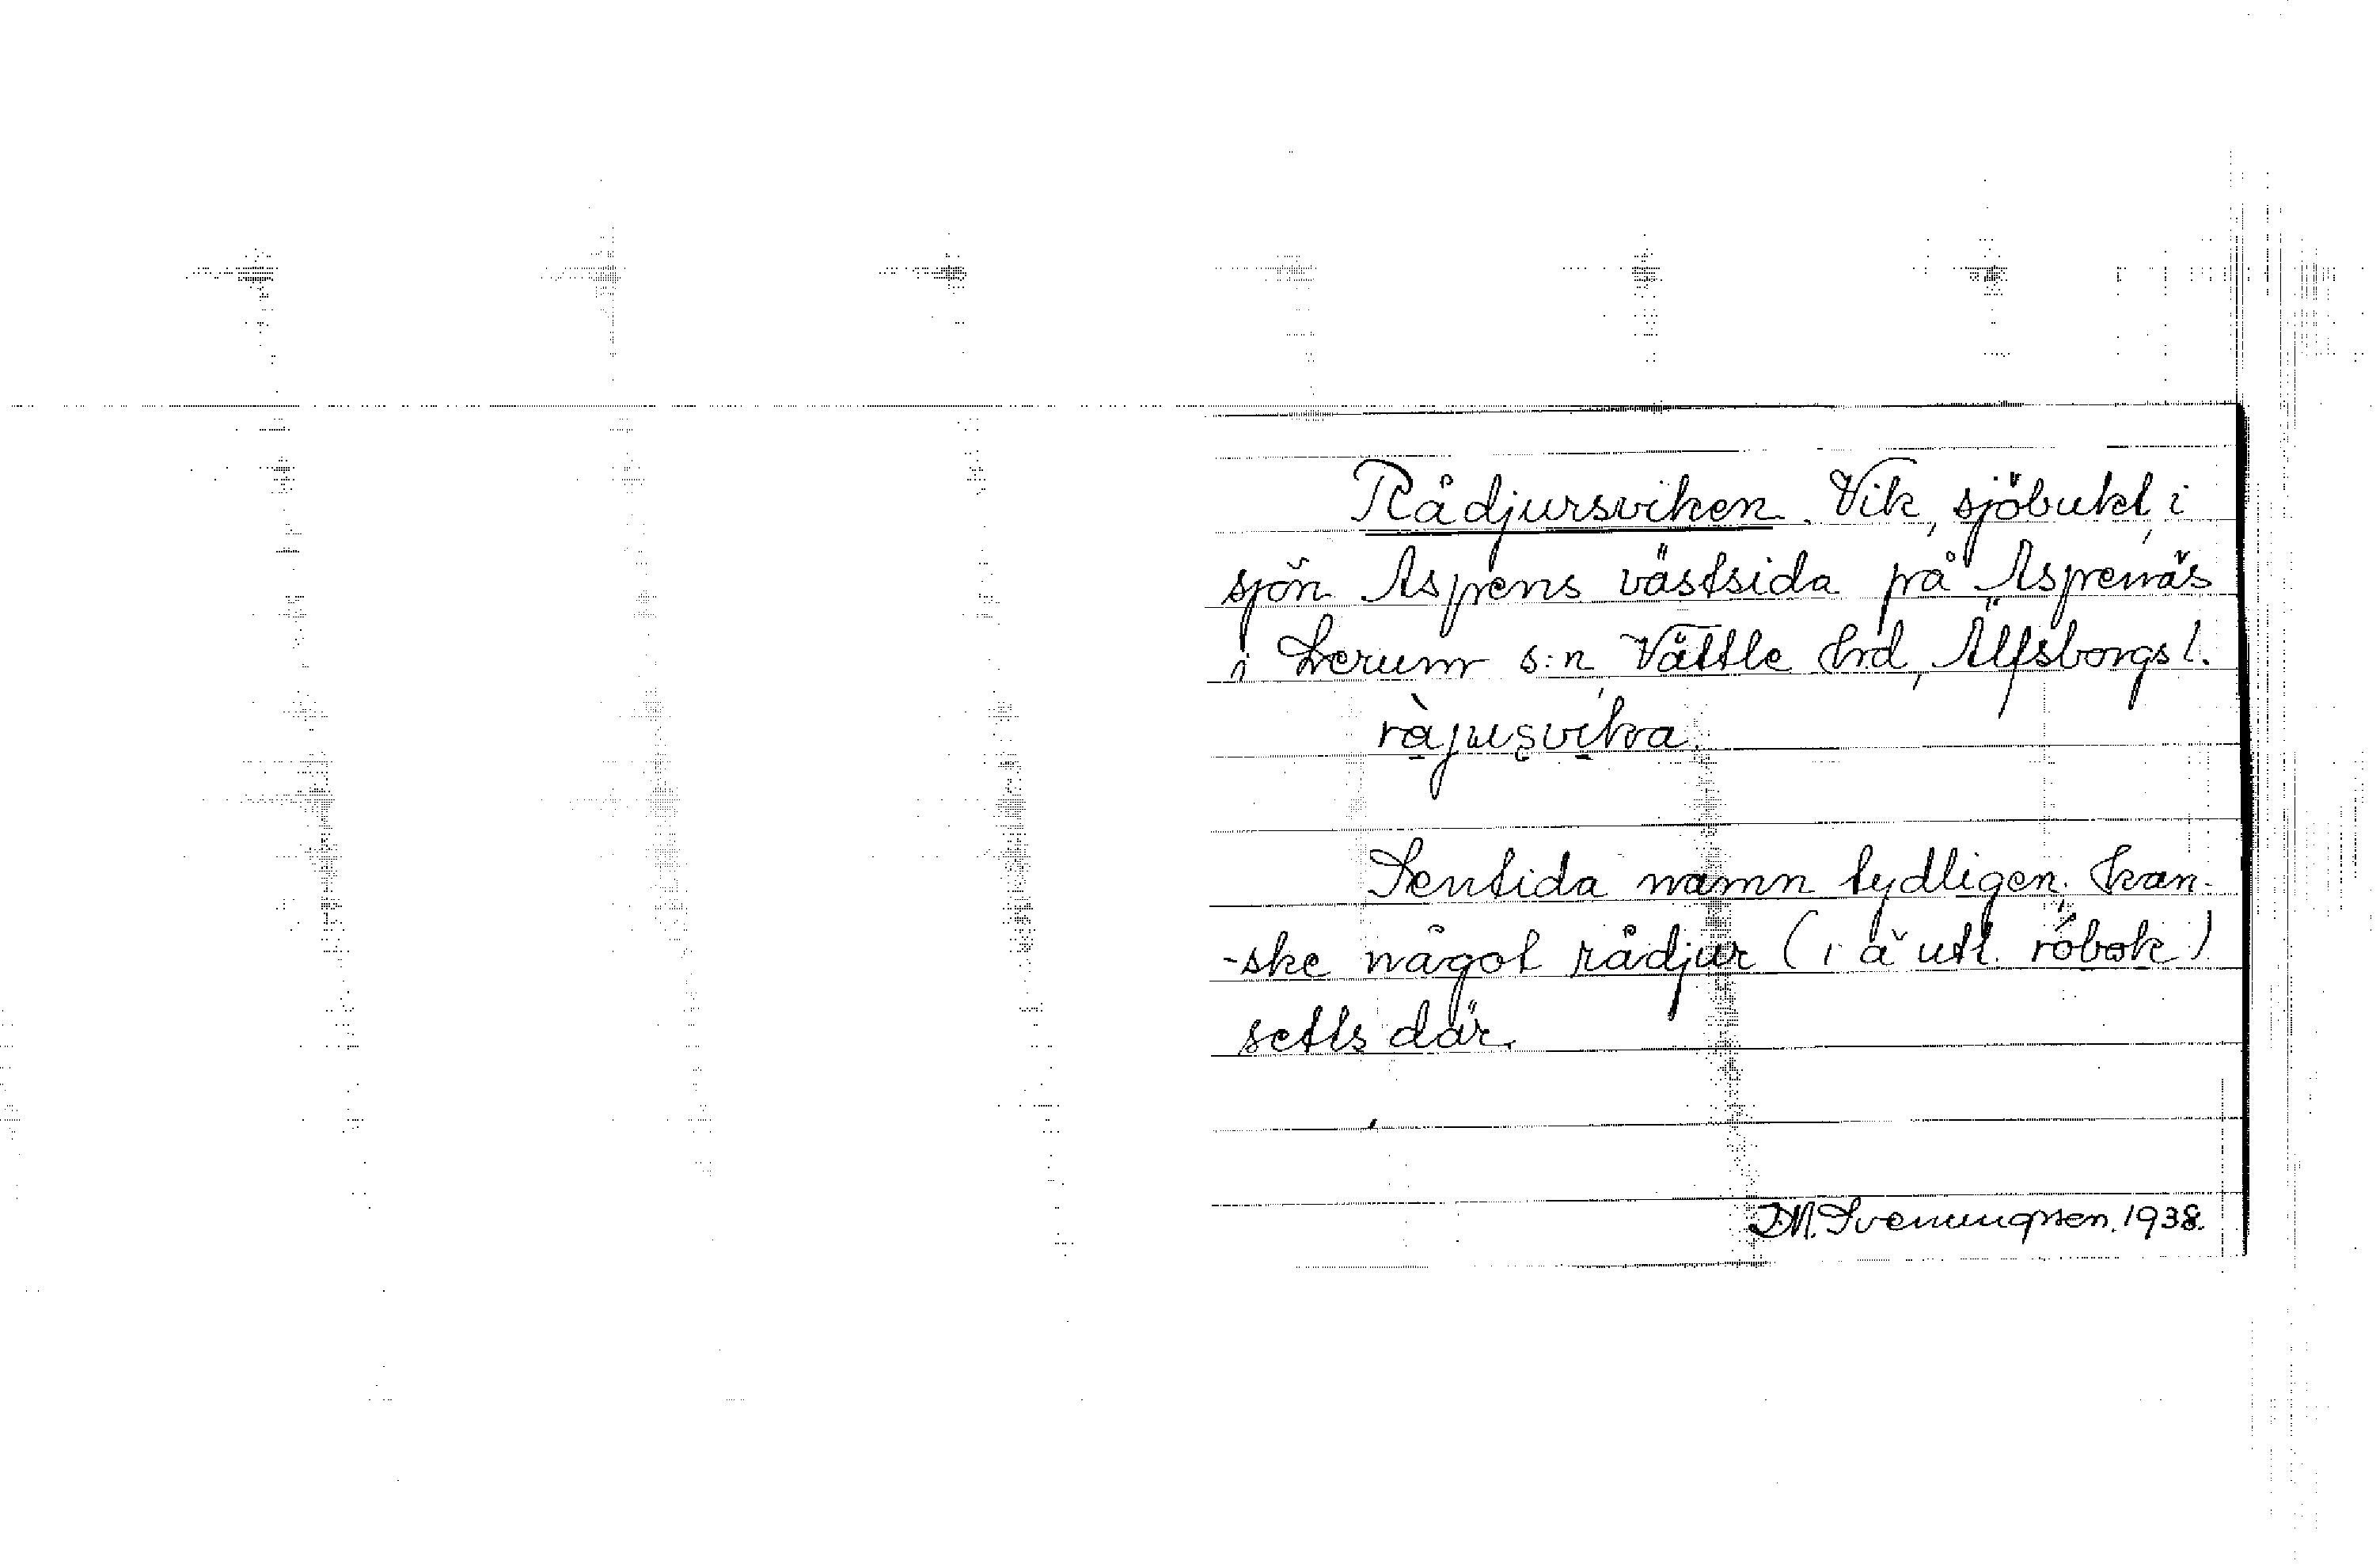 Rådjursviken. Vik, sjöbukt, i
sjön Aspens västsida på Aspenäs
i Lerum s:n, Vättle hd, Älfsborgs l.
råjusvika.
Sentida namn tydligen. Kan-
-ske något rådjur ( i ä utt. röbok )
setts där.
I.M. Svenungsen. 1938.